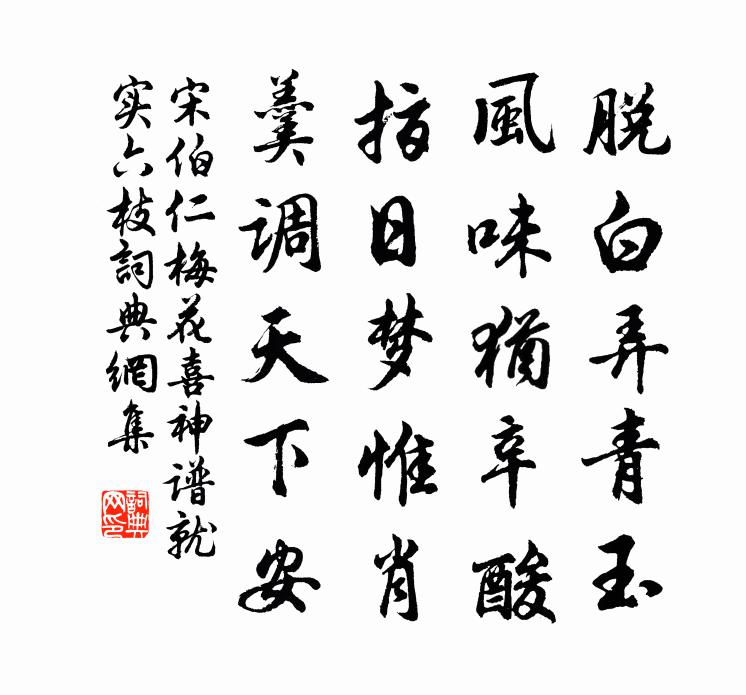 脱白弄青玉
風味猶辛酸
指日梦惟肖
羹调天下安
宋伯仁梅花喜神谱就
实六枝詞典網集
詞典网印